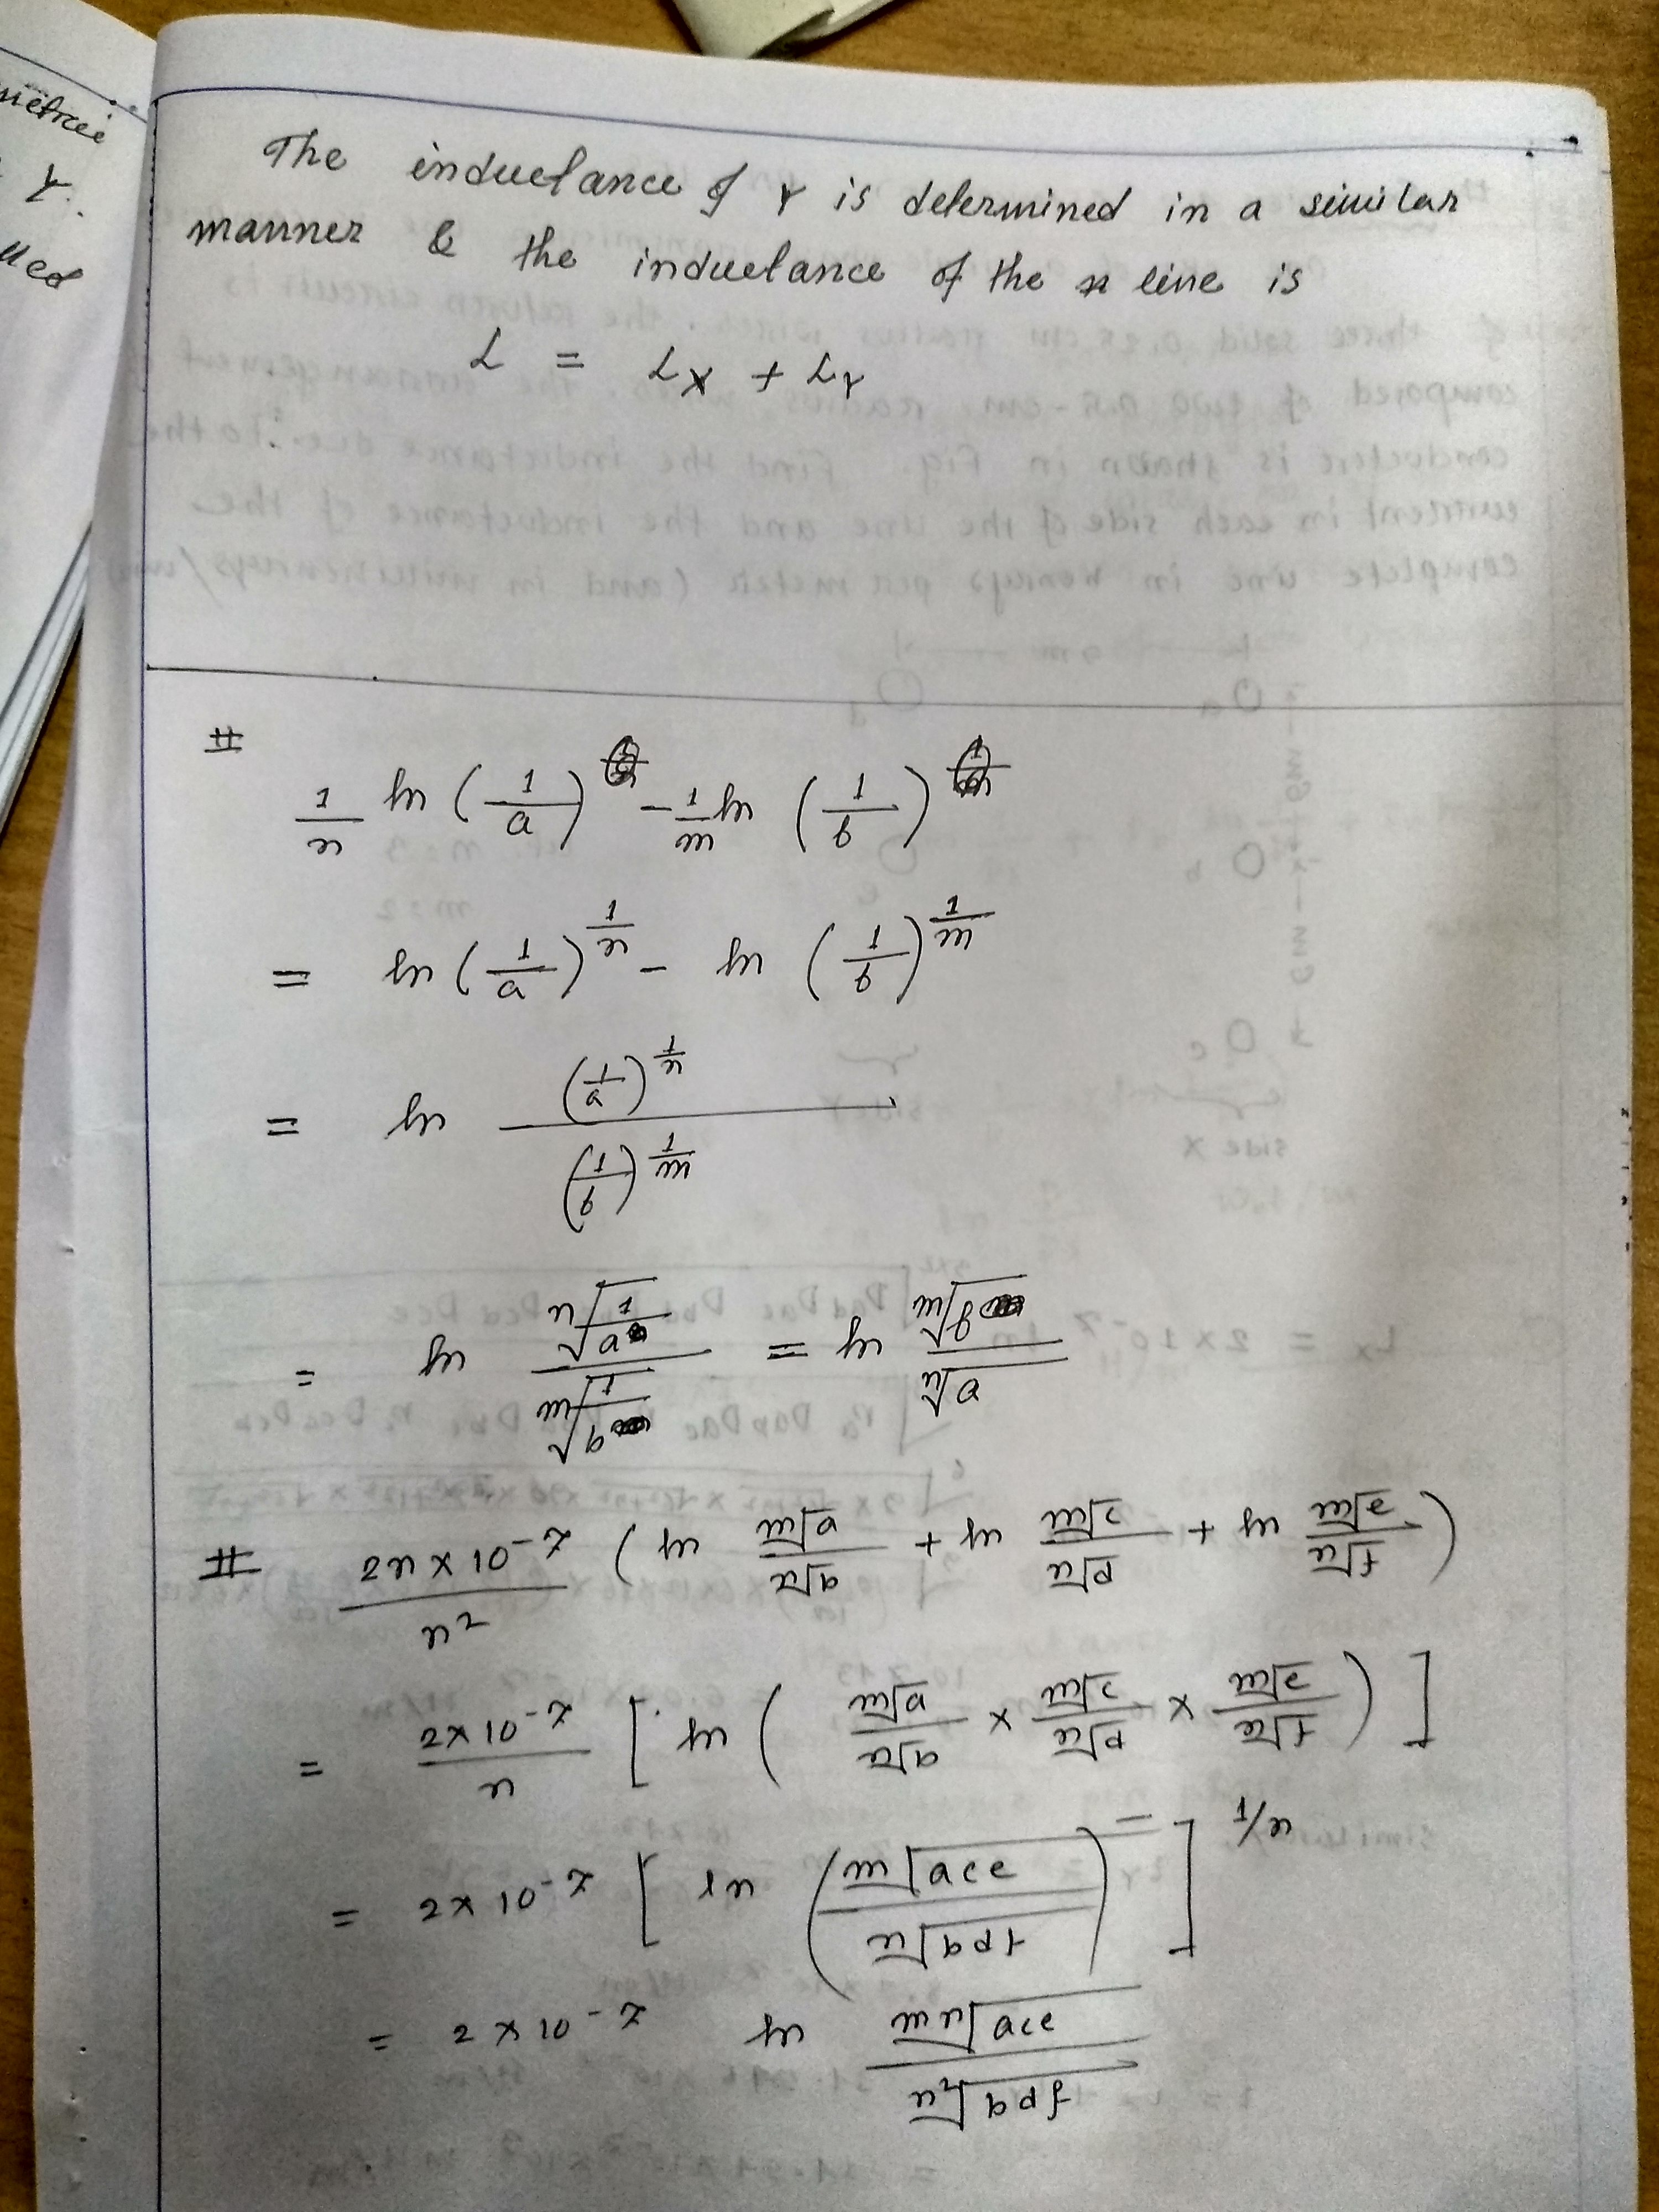 metric
Y.
lled
The inductance of Y is determined in a similar
manner & the inductance of the line is
L = Lx + LY
#
1/n ln (1/a) - 1/m ln (1/b)
= ln (1/a)^(1/n) - ln (1/b)^(1/m)
= ln (1/a)^(1/n) / (1/b)^(1/m)
= ln ⁿ√(1/a) / ᵐ√(1/b) = ln ᵐ√b / ⁿ√a
# 2n × 10⁻⁷ / n² ( ln ᵐ√a / ⁿ√b + ln ᵐ√c / ⁿ√d + ln ᵐ√e / ⁿ√f )
= 2×10⁻⁷ / n [ ln ( ᵐ√a / ⁿ√b × ᵐ√c / ⁿ√d × ᵐ√e / ⁿ√f ) ]
= 2×10⁻⁷ [ ln ( ᵐ√ace / ⁿ√bdf ) ]^(1/n)
= 2×10⁻⁷ ln ᵐⁿ√ace / ⁿ²√bdf